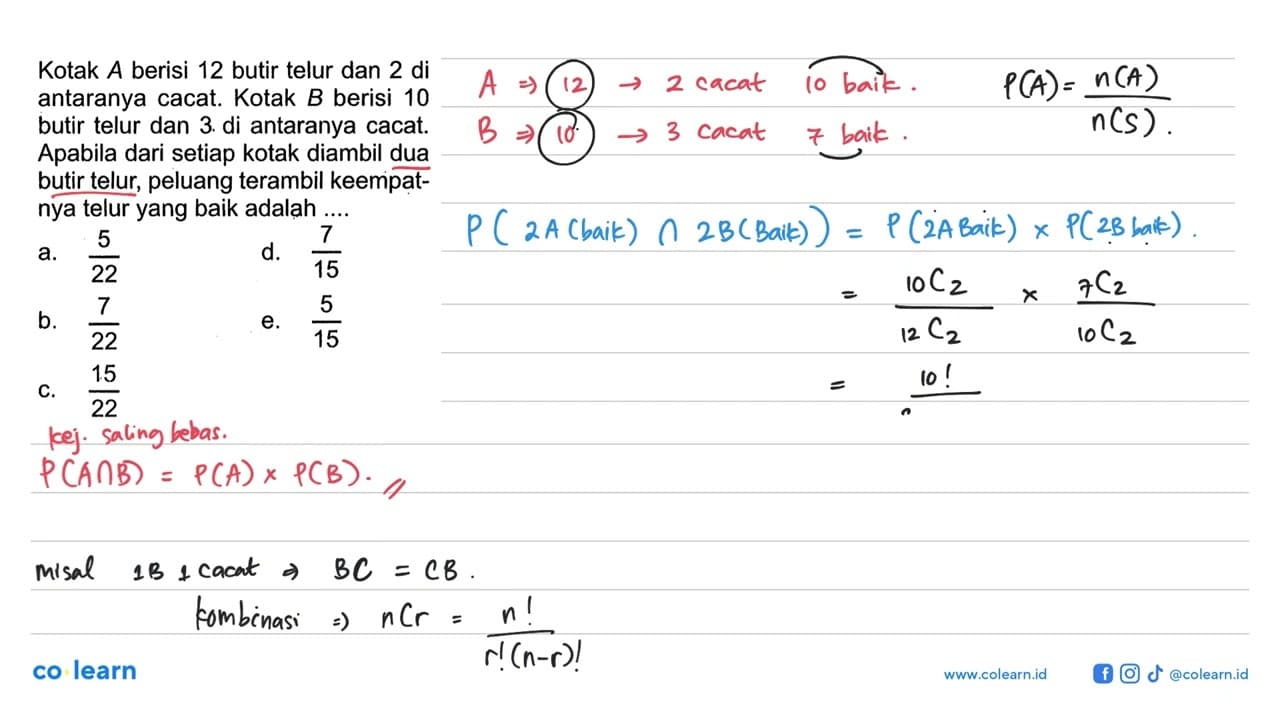 Kotak A berisi 12 butir telur dan 2 di
antaranya cacat. Kotak B berisi 10
butir telur dan 3 di antaranya cacat.
Apabila dari setiap kotak diambil dua
butir telur, peluang terambil keempat-
nya telur yang baik adalah ....
a. 5/22 d. 7/15
b. 7/22 e. 5/15
c. 15/22
kej. saling bebas.
P(A∩B) = P(A) × P(B).
A ⇒ 12 → 2 cacat 10 baik.
B ⇒ 10 → 3 cacat 7 baik.
P(A) = n(A)/n(S).
P(2A(baik) ∩ 2B(Baik)) = P(2A Baik) × P(2B baik).
= 10C2/12C2 × 7C2/10C2
= 10!
misal 1B 1 cacat ⇒ BC = CB.
kombinasi ⇒ nCr = n!/r!(n-r)!
co learn
www.colearn.id
@colearn.id